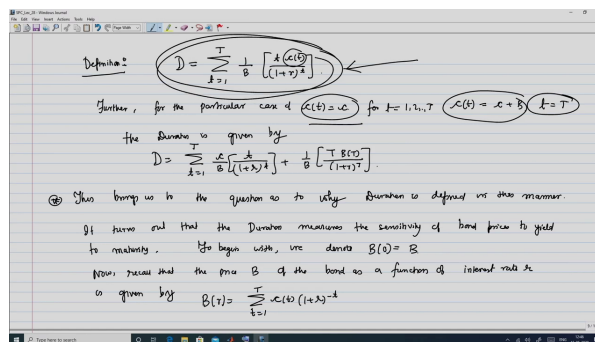 SPC_Lec_28 - Windows Journal
File Edit View Insert Actions Tools Help
Page Width
Definition:
D = \sum_{t=1}^{T} \frac{1}{B} \left[ \frac{t c(t)}{(1+r)^t} \right].
Further, for the particular case of c(t) = c for t = 1,2,..,T c(t) = c + B t = T
the Duration is given by
D = \sum_{t=1}^{T} \frac{c}{B} \left[ \frac{t}{(1+r)^t} \right] + \frac{1}{B} \left[ \frac{T B(T)}{(1+r)^T} \right].
This brings us to the question as to why Duration is defined in this manner.
It turns out that the Duration measures the sensitivity of bond prices to yield
to maturity. To begin with, we denote B(0) = B
Now, recall that the price B of the bond as a function of interest rate r
is given by B(r) = \sum_{t=1}^{T} c(t) (1+r)^{-t}
Type here to search
ENG